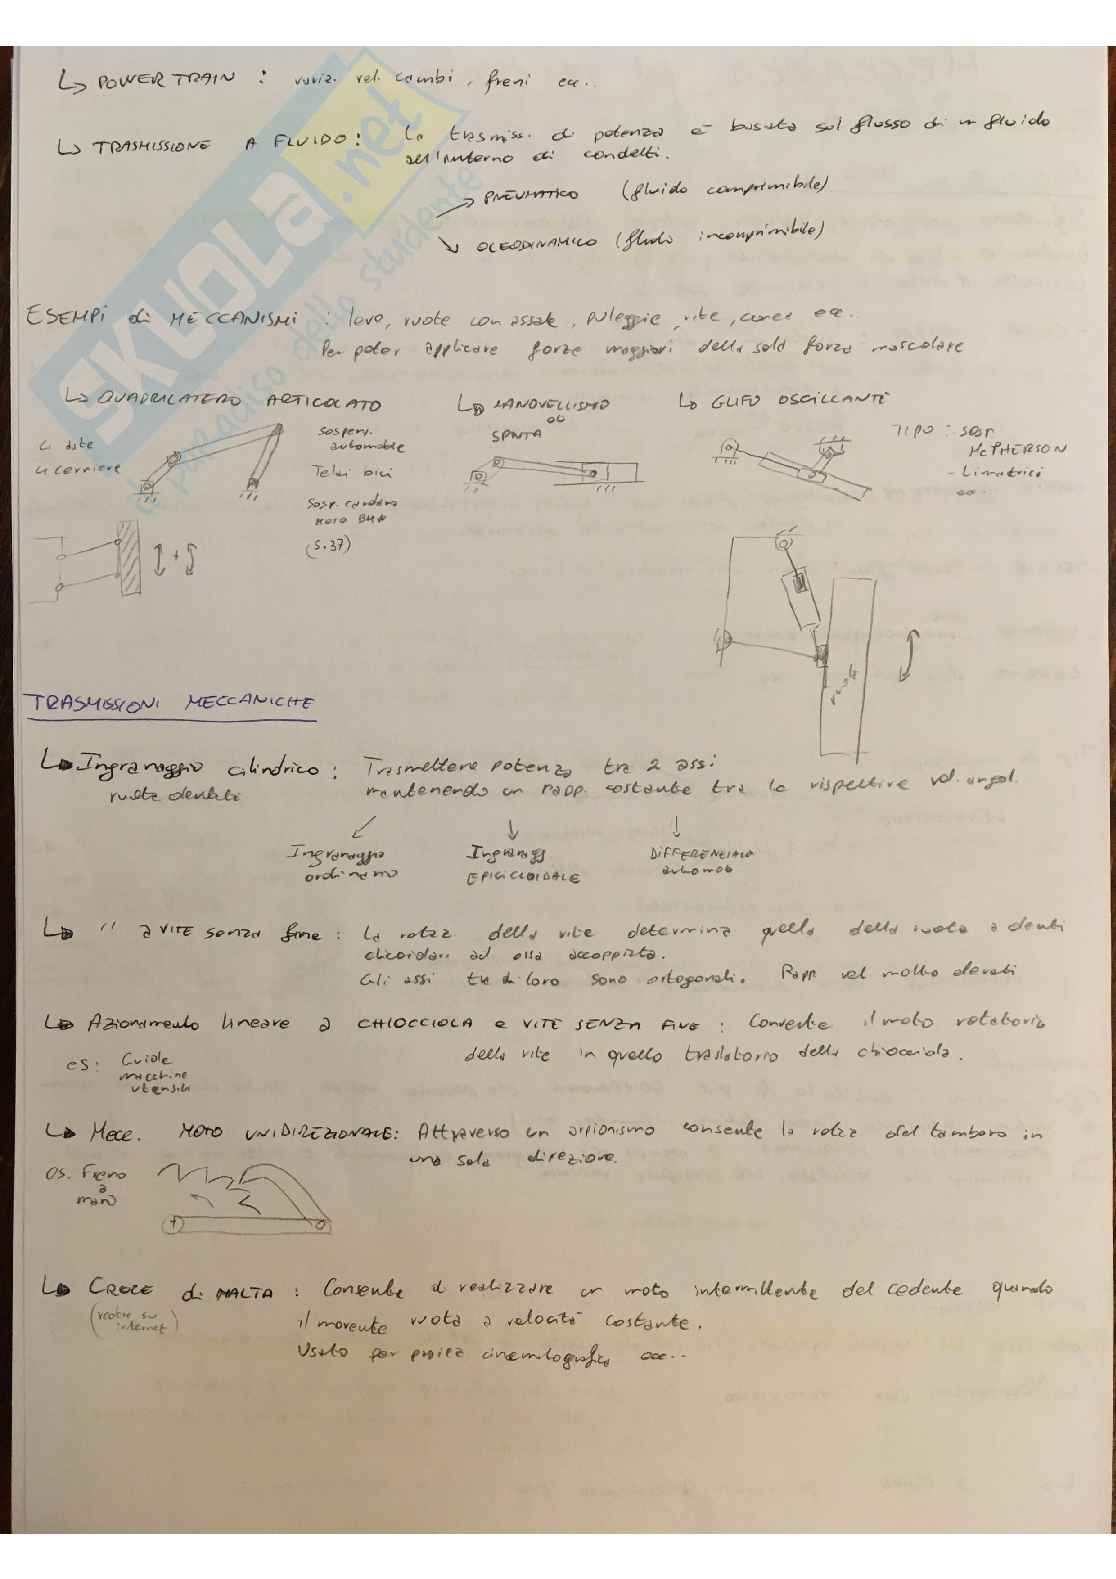 ↳ POWER TRAIN : variz. vel. cambi, freni ecc..
↳ TRASMISSIONE A FLUIDO : La trasmiss. di potenza è basata sul flusso di un fluido
all'interno di condotti.
→ PNEUMATICO (fluido comprimibile)
↘ OLEODINAMICO (fluido incomprimibile)
ESEMPI di MECCANISMI : leve, ruote con assale, pulegge, vite, cunei ecc.
Per poter applicare forze maggiori della sola forza muscolare
↳ QUADRILATERO ARTICOLATO
↳ MANOVELLISMO
SPINTA
↳ GLIFO OSCILLANTE
4 aste
4 cerniere
Sospens.
automobile
Telai bici
Sosp. cardano
moto BMW
(5.37)
TIPO : sosp
McPHERSON
- Limatrici
ecc..
ruota
TRASMISSIONI MECCANICHE
↳ Ingranaggio cilindrico : Trasmettere potenza tra 2 assi
ruote dentate
mantenendo un rapp. costante tra le rispettive vel. angol.
Ingranaggio
ordinario
Ingranagg
EPICICLOIDALE
DIFFERENZIALE
automob
↳ " a VITE senza fine : La rotaz della vite determina quella della ruota a denti
elicoidali ad essa accoppiata.
Gli assi tra di loro sono ortogonali. Rapp vel molto elevati
↳ Azionamento lineare a CHIOCCIOLA e VITE SENZA FINE : Converte il moto rotatorio
della vite in quello traslatorio della chiocciola.
es: Guide
macchine
utensili
↳ Mecc. MOTO UNIDIREZIONALE: Attraverso un arpionismo consente la rotaz del tamburo in
una sola direzione.
es. Freno
a
mano
↳ CROCE di MALTA : Consente di realizzare un moto intermittente del cedente quando
(vedere su
internet)
il movente ruota a velocità costante.
Usato per proiez cinematografica ecc..
SKUOLA.net
il paradiso dello studente